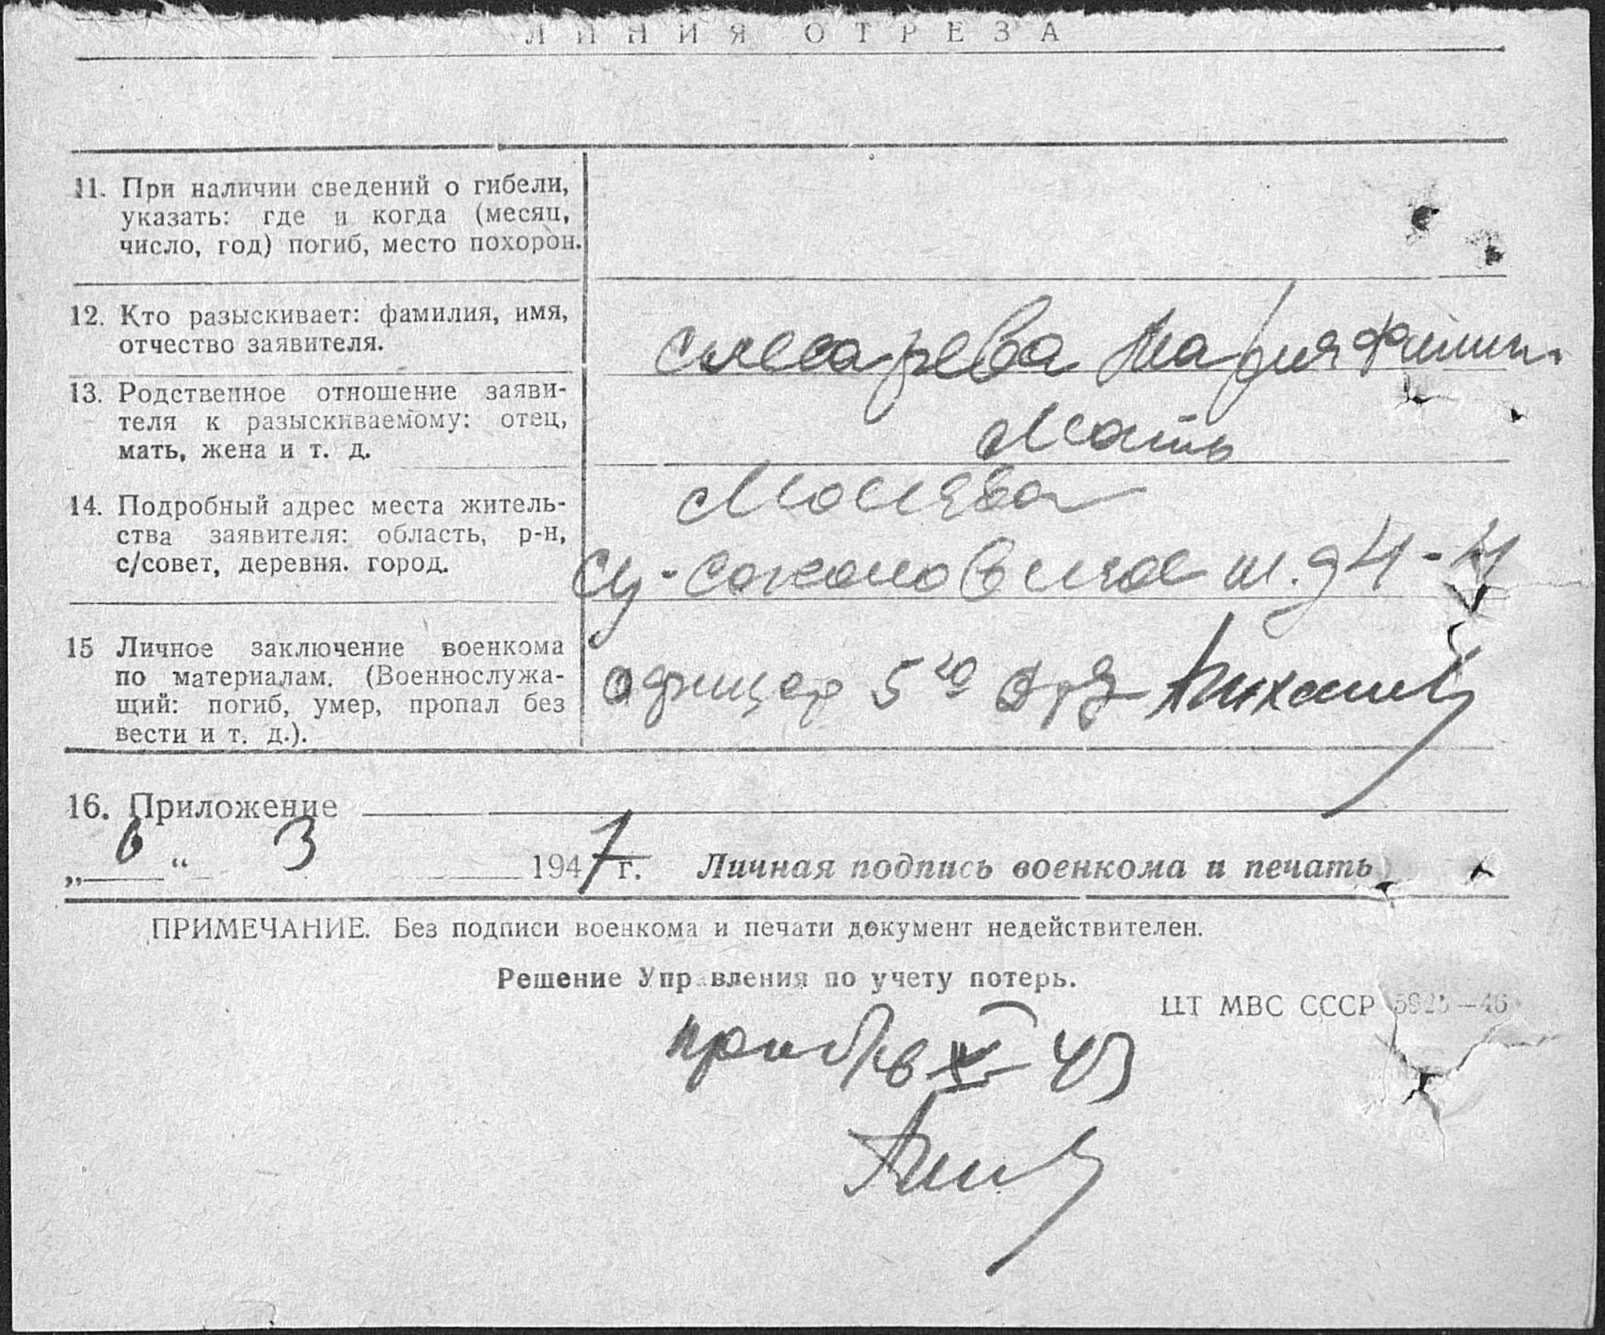 ЛИНИЯ ОТРЕЗА
11. При наличии сведений о гибели,
указать: где и когда (месяц,
число, год) погиб, место похорон.
12. Кто разыскивает: фамилия, имя,
отчество заявителя.
Слесарева Мария Филип.
13. Родственное отношение заяви-
теля к разыскиваемому: отец,
мать, жена и т. д.
Мать
14. Подробный адрес места житель-
ства заявителя: область, р-н,
с/совет, деревня. город.
Москва
ш. д 4-
15 Личное заключение военкома
по материалам. (Военнослужа-
щий: погиб, умер, пропал без
вести и т. д.).
Офицер 5го
16. Приложение
„6“ 3 1947 г. Личная подпись военкома и печать
ПРИМЕЧАНИЕ. Без подписи военкома и печати документ недействителен.
Решение Управления по учету потерь.
ЦТ МВС СССР
43